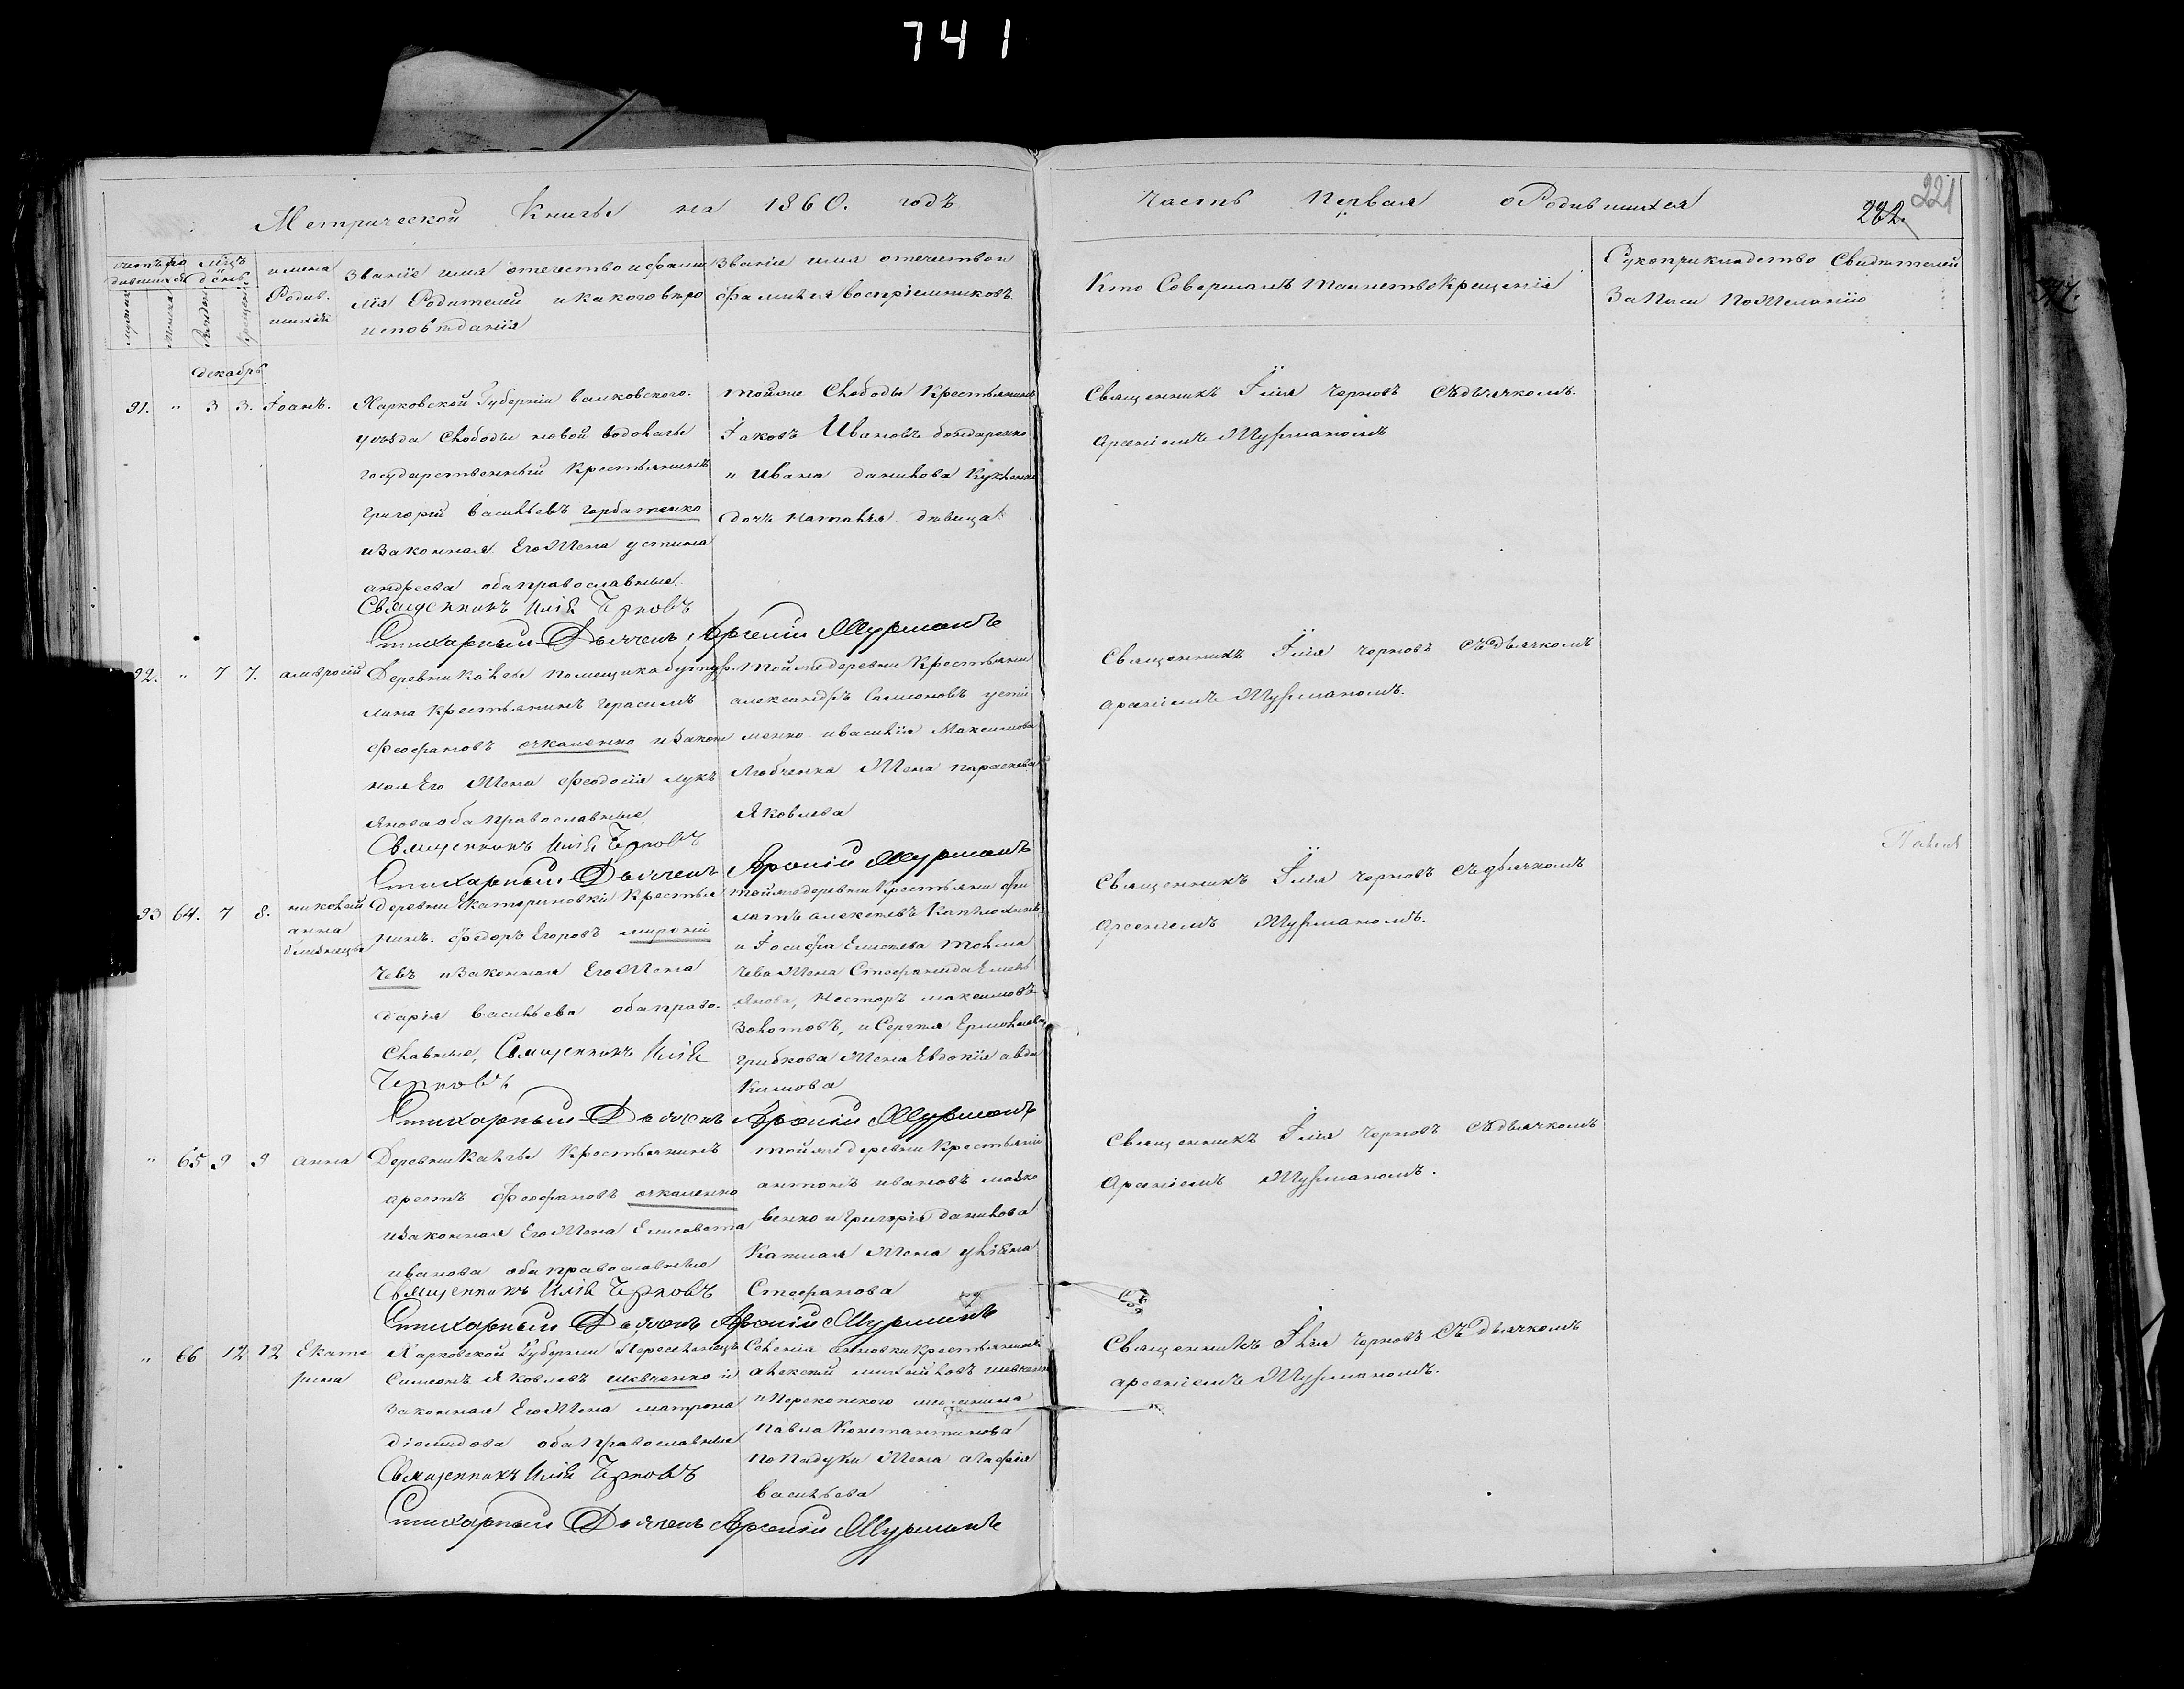 741
Метрической Книги на 1860. годъ
Часть Первая о Родившихся
221
222.
Имена Родив. шихся
Званіе имя отечество и фами
лія Родителей и какого вѣро
исповѣданія
Званіе имя отечество и
фамилія воспріемниковъ
Кто Совершалъ таинство Крещенія
Рукоприкладство Свидѣтелей
Записи По Желанію
Декабрь
91. " 3 3. Іоанъ.
Харковской Губерніи валковского.
уѣзда Слободы новой водолаги
государственный Крестьянинъ
григорій васильевъ горбатенко
и Законная Его Жена устина
андреева оба православные.
Священникъ Илія Черновъ
Стихарный Дьячекъ Арсеній Шурманъ
тойже Слободы Крестьянинъ
Іаковъ Ивановъ бондаренко
и Ивана данилова
дочь наталья дѣвица
Священникъ Илія Черновъ Съ дьячкомъ.
Арсеніемъ Шурманомъ
92. " 7 7. амвросій
Деревни помещика
лина Крестьянинъ Герасимъ
Феофановъ очкаленко и Закон
ная Его Жена Феодосія лукь
янова оба Православные,
Священникъ Илія Черновъ
Стихарный Дьячекъ Арсеній Шурманъ
Тойже деревни Крестьяни
александръ Самсоновъ усти
менко и василія Максимова
Любченка Жена параскева
Яковлева
Священникъ Илія Черновъ Съ дьячкомъ
Арсеніемъ Шурманомъ.
93 64. 7 8. николай
анна
близнецы
Деревни Екатериновки Крестья
нинъ. Федоръ Егоровъ мироній
чевъ и Законная Его Жена
дарія васильева оба право.
славные, Священникъ Илія
Черновъ
Стихарный Дьячекъ Арсеній Шурманъ
тойже деревни Крестьяни фи
латъ алексѣевъ
и Іосифа Елисѣева толма
чева Жена Стефанида Емель
янова, Несторъ максимовъ
Золотовъ, и Сергѣя Ермолаева
грибкова Жена Евдокія авда
кимова
Священникъ Илія Черновъ Съ дьячкомъ
Арсеніемъ Шурманомъ.
" 65 9 9 анна
Деревни Крестьянинъ
арестъ Феофановъ очкаленко
и Законная Его Жена Елисавета
иванова оба православные
Священникъ Илія Черновъ
Стихарный Дьячекъ Арсеній Шурманъ
тойже деревни Крестьяни
антонъ ивановъ малко
венко и Григорія данилова
Жена уліяна
Стефанова
Священникъ Илія Черновъ Съ дьячкомъ
Арсеніемъ Шурманомъ.
" 66 12 12 Екате
рина
Харковской Губерніи Переселенецъ
Симеонъ Яковлевъ шевченко и
Законная Его Жена матрона
діомидова оба Православные
Священникъ Илія Черновъ
Стихарный Дьячекъ Арсеній Шурманъ
Селенія Крестьянинъ
алексѣй михайловъ
и Перекопского мещанина
павла Константинова
Жена агафія
васильева
Священникъ Илія Черновъ Съ дьячкомъ
арсеніемъ Шурманомъ.